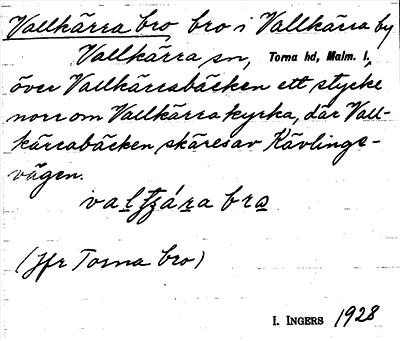 Vallkärra bro, bro i Vallkärra by
Vallkärra sn, Torna hd, Malm. l.,
över Vallkärrabäcken ett stycke
norr om Vallkärra kyrka, där Vall-
kärrabäcken skäres av Kävlinge-
vägen.
(Jfr Torna bro)
I. INGERS 1928